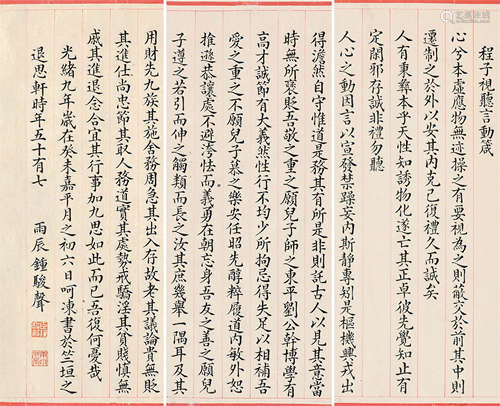 程子視聽言動箴
心兮本虛應物無迹操之有要視為之則蔽交於前其中則
遷制之於外以安其內克己復禮久而誠矣
人有秉彝本乎天性知誘物化遂亡其正卓彼先覺知止有
定閑邪存誠非禮勿聽
人心之動因言以宣發禁躁妄內斯靜專矧是樞機興戎出
得澹然自守惟道是務其有所是非則託古人以見其意當
時無所褒貶吾敬之重之願兒子師之東平劉公幹博學有
高才誠節有大義然性行不均少所拘忌得失足以相補吾
愛之重之不願兒子慕之樂安任昭先醇粹履道內敏外恕
推遜恭讓處不避洿怯而義勇在朝忘身吾友之善之願兒
子遵之若引而伸之觸類而長之汝其庶幾舉一隅耳及其
用財先九族其施舍務周急其出入存故老其議論貴無貶
其進仕尚忠節其取人務道實其處勢戒驕淫其貧賤慎無
戚其進退念合宜其行事加九思如此而已吾復何憂哉
光緒九年歲在癸未嘉平月之初六日呵凍書於竺垣之
退思軒時年五十有七
雨辰鍾駿聲